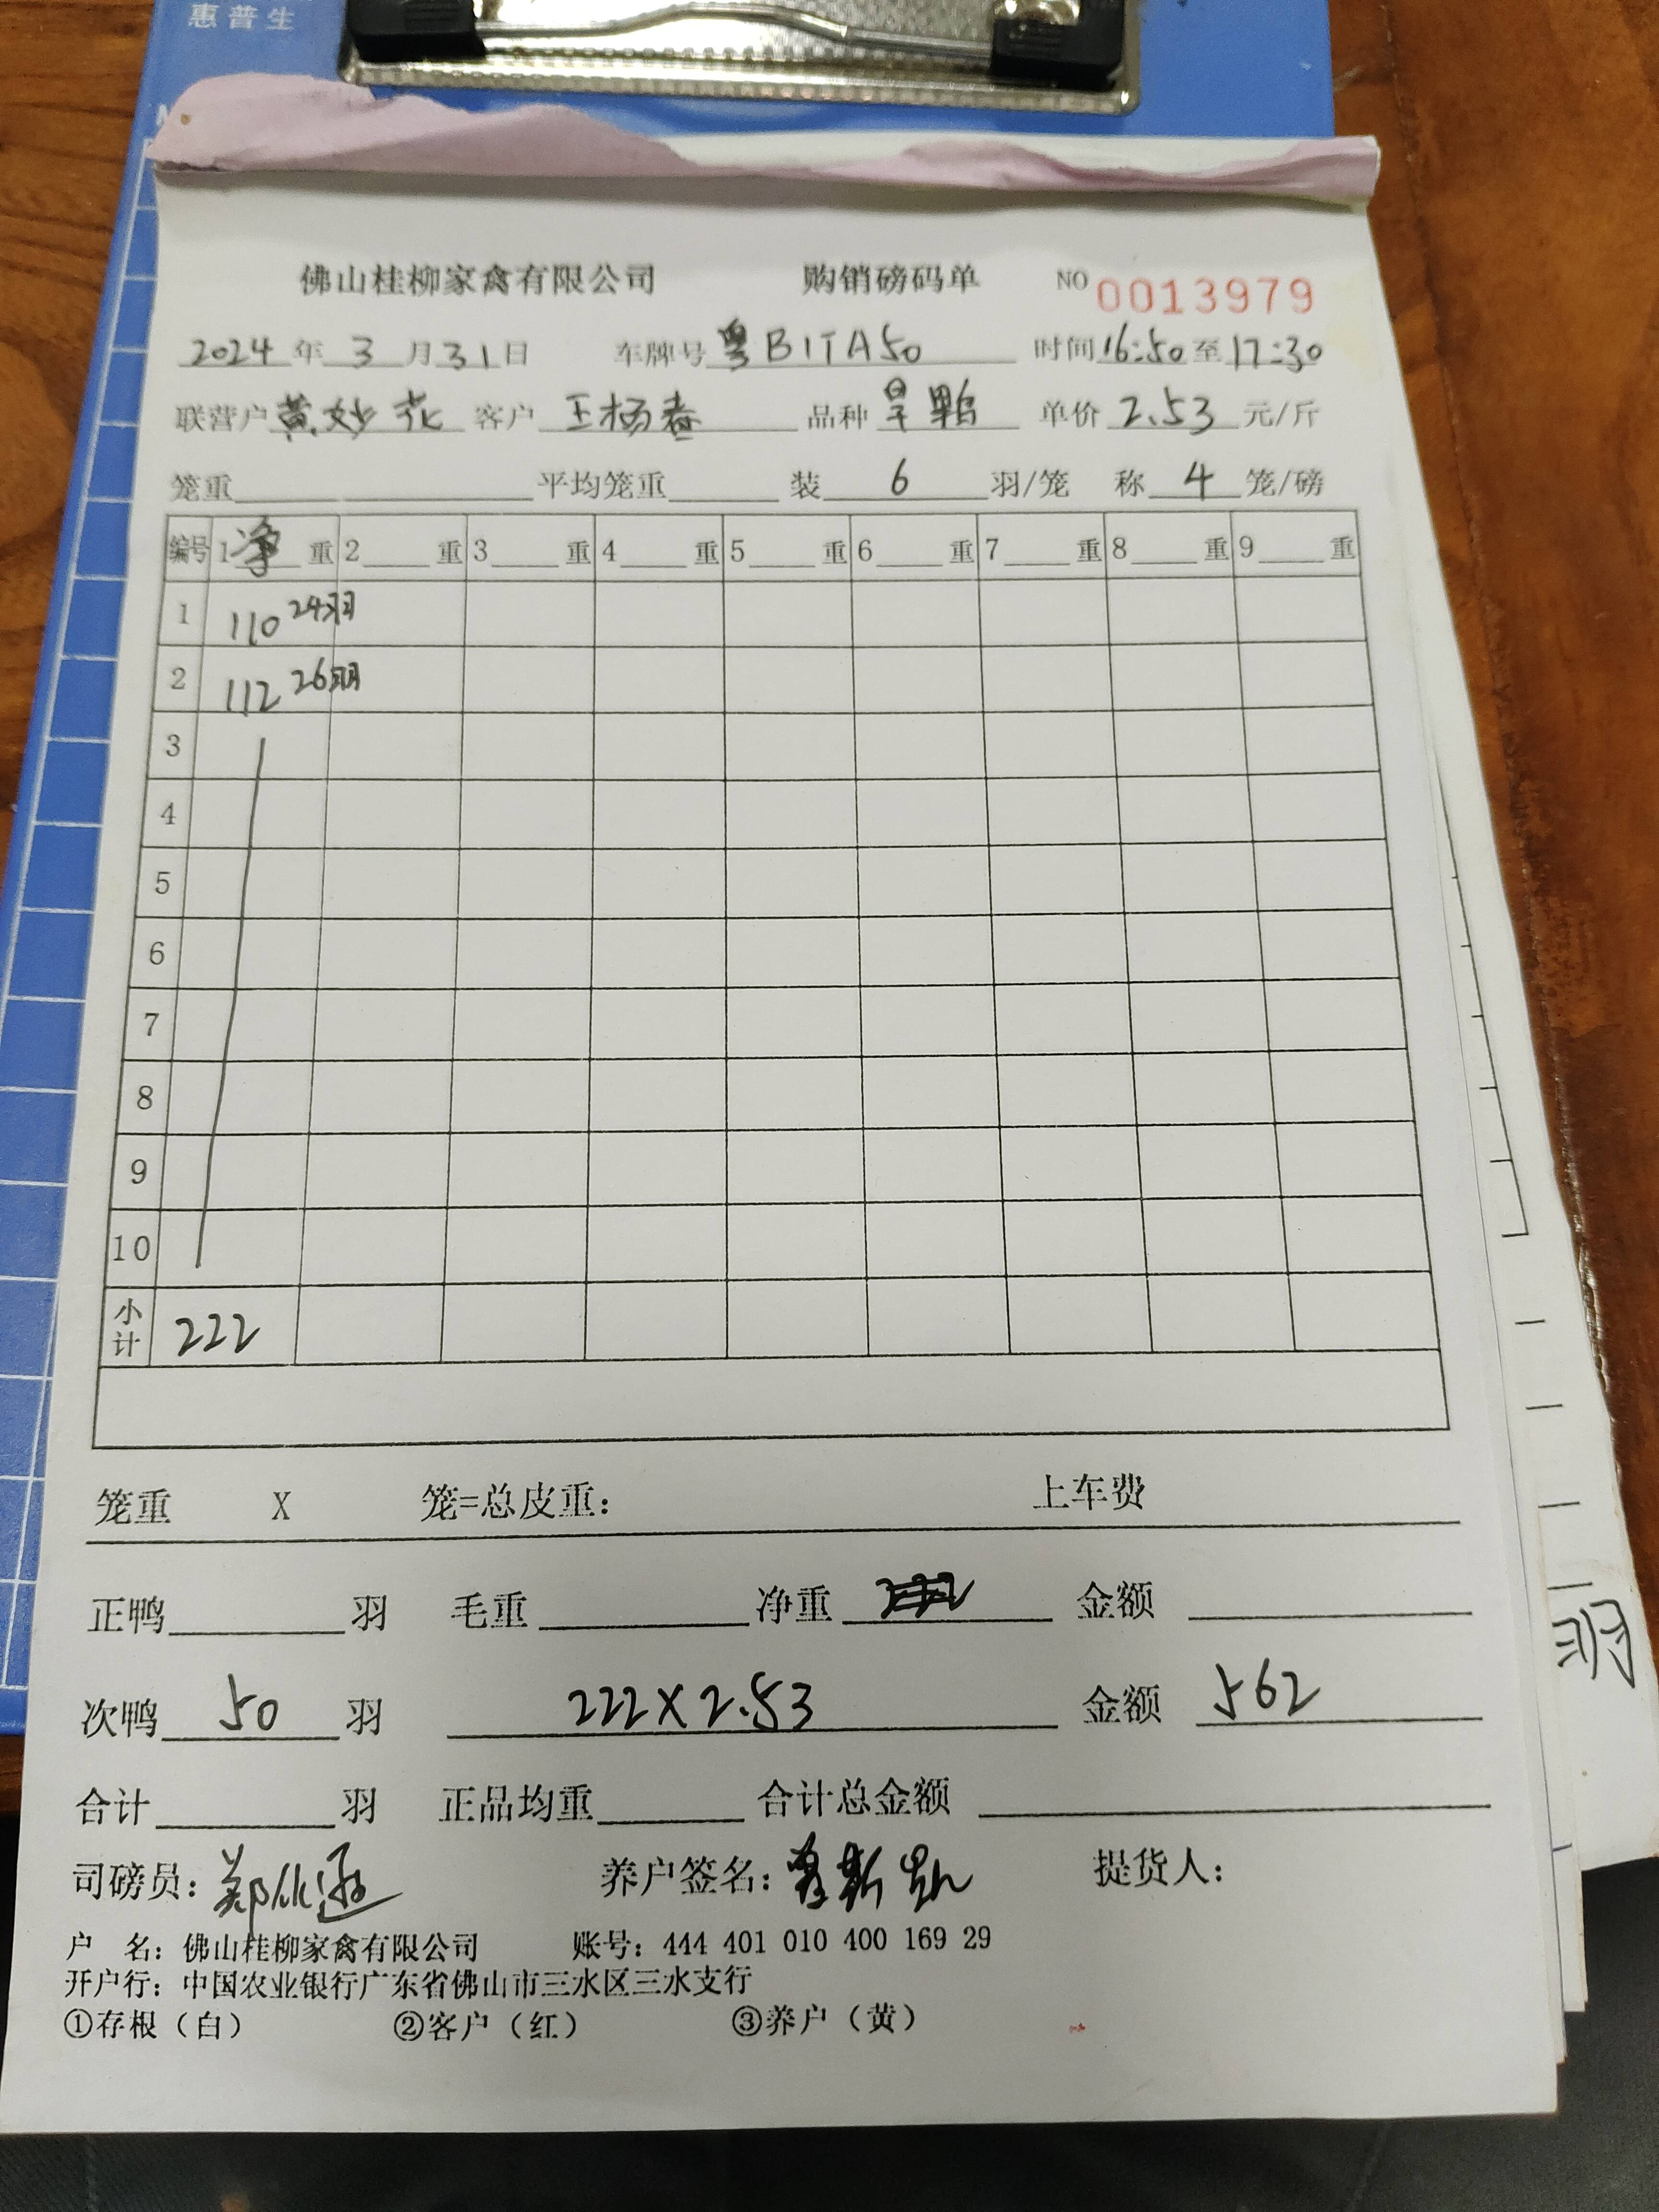 惠普生
佛山桂柳家禽有限公司 购销磅码单 NO 0013979
2024 年 3 月 31 日 车牌号 粤B1TA50 时间 16:50 至 17:30
联营户 黄妙花 客户 王杨春 品种 单价 2.53 元/斤
笼重 平均笼重 装 6 羽/笼 称 4 笼/磅
编号 1 净 重 2 重 3 重 4 重 5 重 6 重 7 重 8 重 9 重
1 110 24羽
2 112 26羽
3
4
5
6
7
8
9
10
小计 222
笼重 X 笼=总皮重： 上车费
正鸭 羽 毛重 净重 金额
次鸭 50 羽 222X2.53 金额 562
合计 羽 正品均重 合计总金额
司磅员： 养户签名： 提货人：
户 名：佛山桂柳家禽有限公司 账号：444 401 010 400 169 29
开户行：中国农业银行广东省佛山市三水区三水支行
①存根（白） ②客户（红） ③养户（黄）
羽